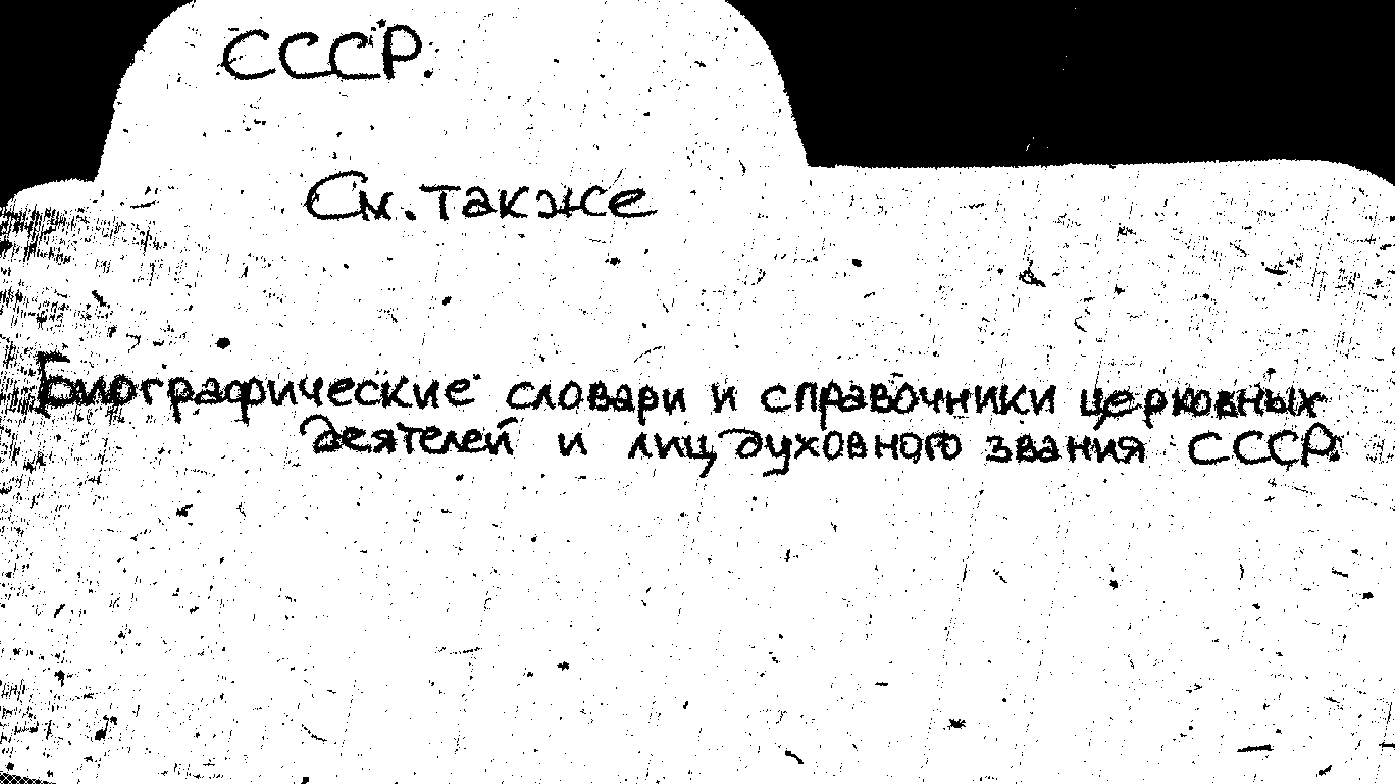 СССР.
См. также
Биографические словари и справочники церковных
деятелей и лиц духовного звания СССР.